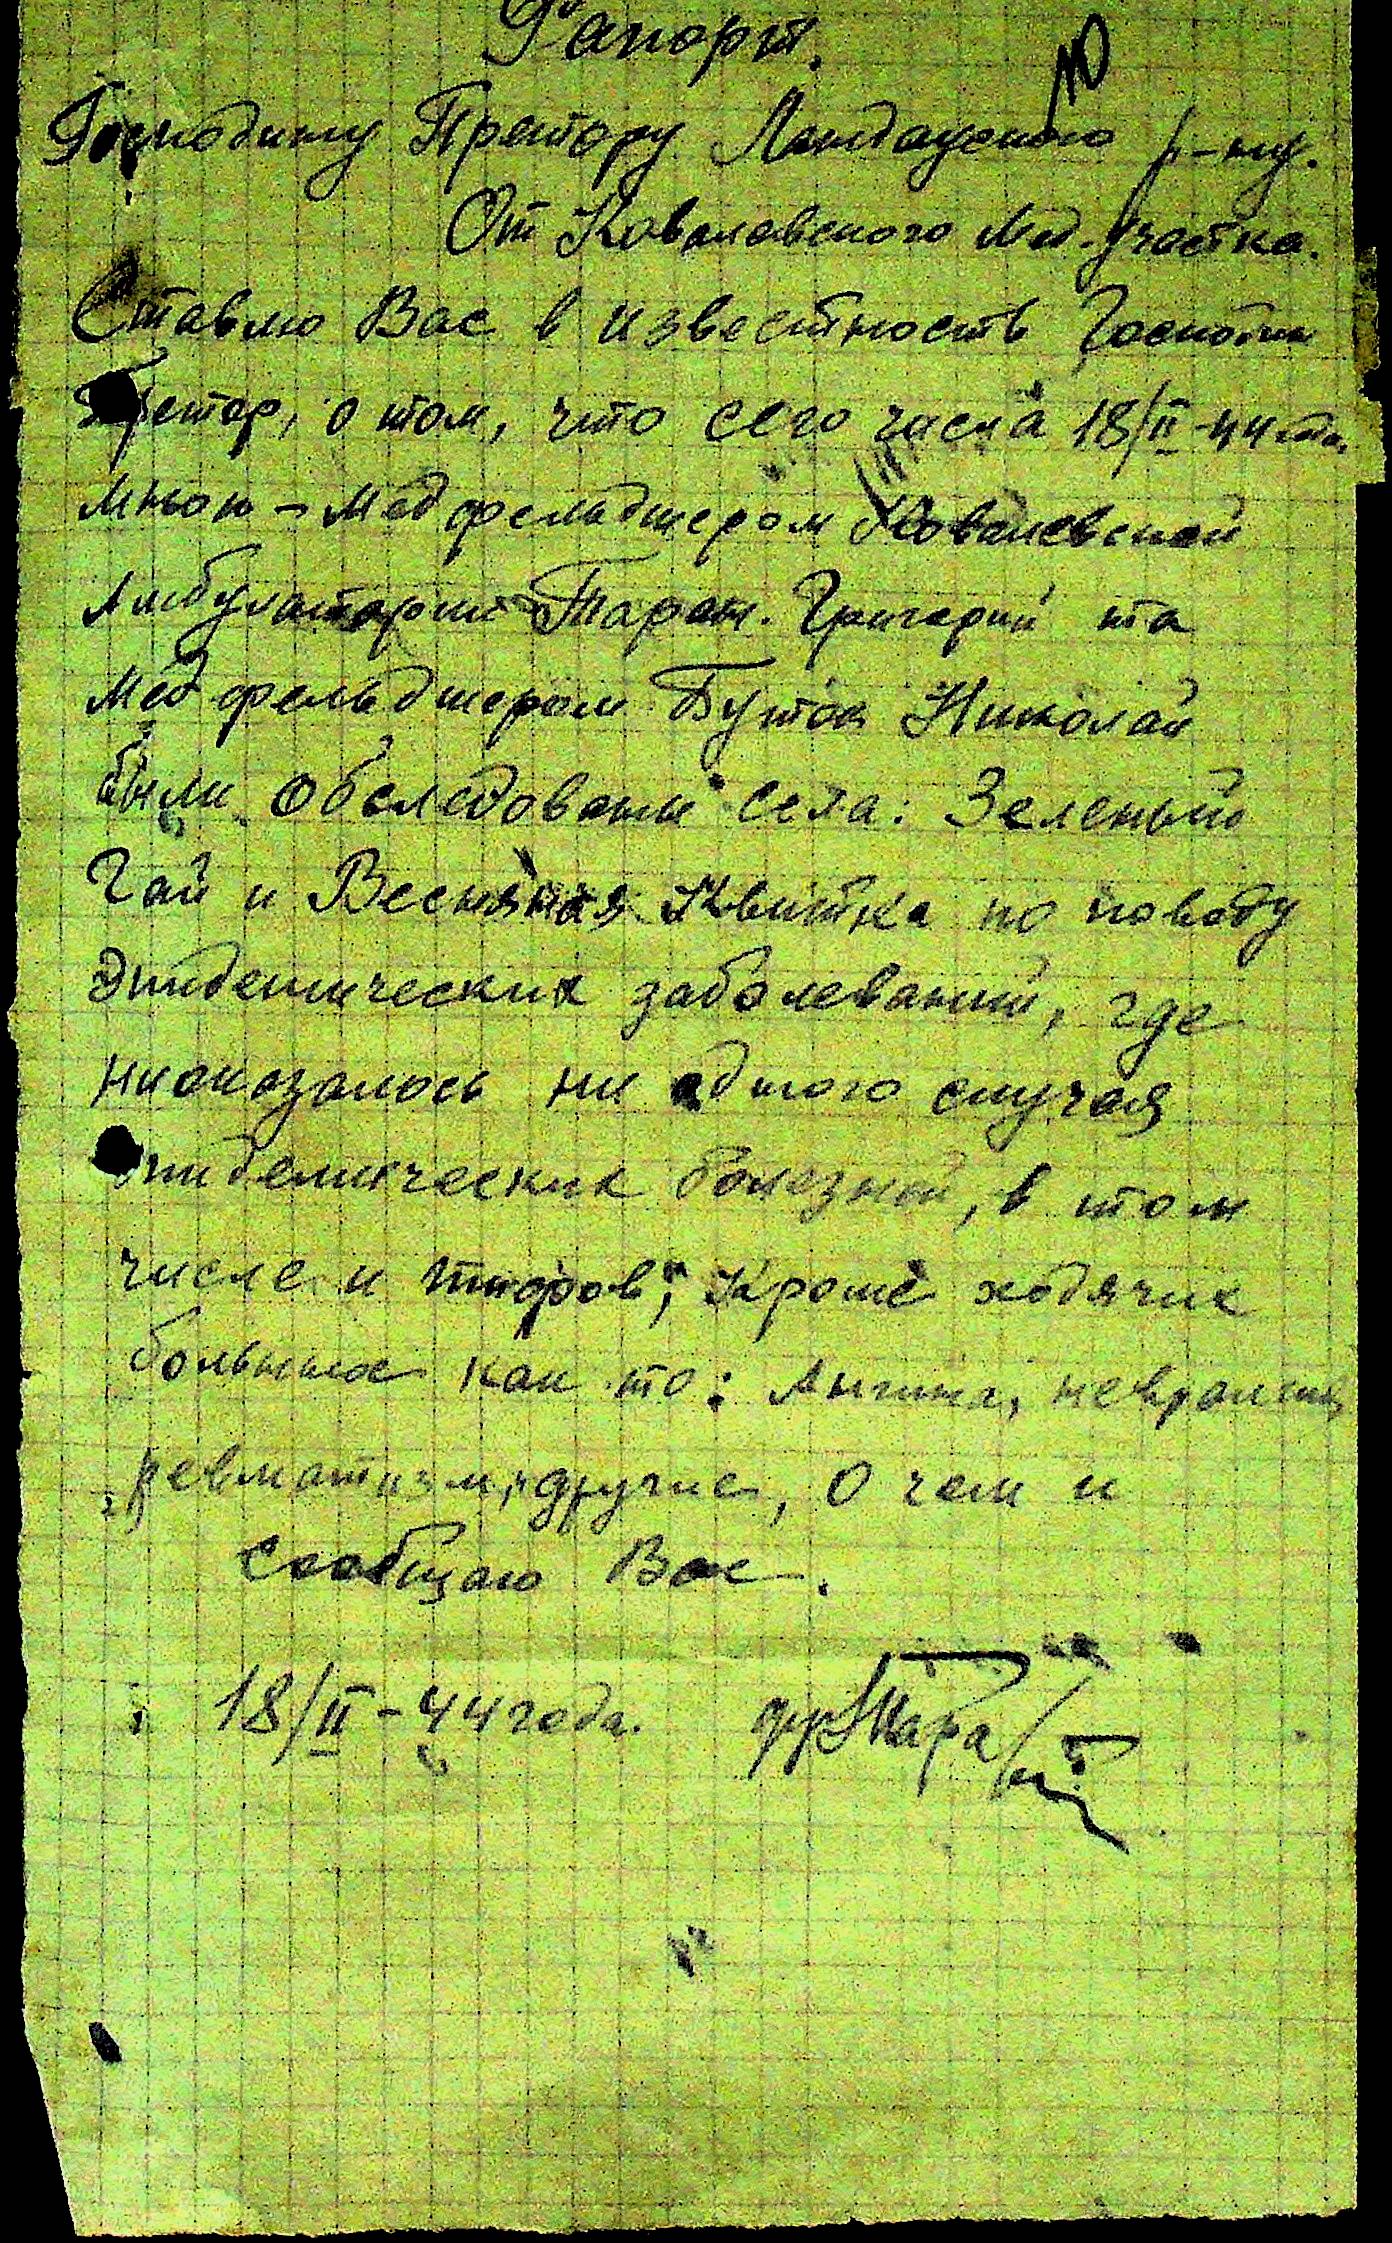 Рапорт.
10
Господину Претору Ландауского р-ну.
От Ковалевского Мед. Участка.
Ставлю Вас в известность Господин
Претор, о том, что сего числа 18/II-44 го.
Мною - Медфельдшером Ковалевской
Амбулатории Таран. Григорий та
Медфельдшером Бутов Николай
были обследованы села: Зеленый
Гай и Весняная Квитка по поводу
Эпидемических заболеваний, где
ниоказалось ни одного случая
эпидемических болезной, в том
числе и тифов, Кроме ходячих
больных как то: Ангина, невралгия
ревматизм, другие, О чем и
сообщаю Вас.
18/II-44 года. Тара